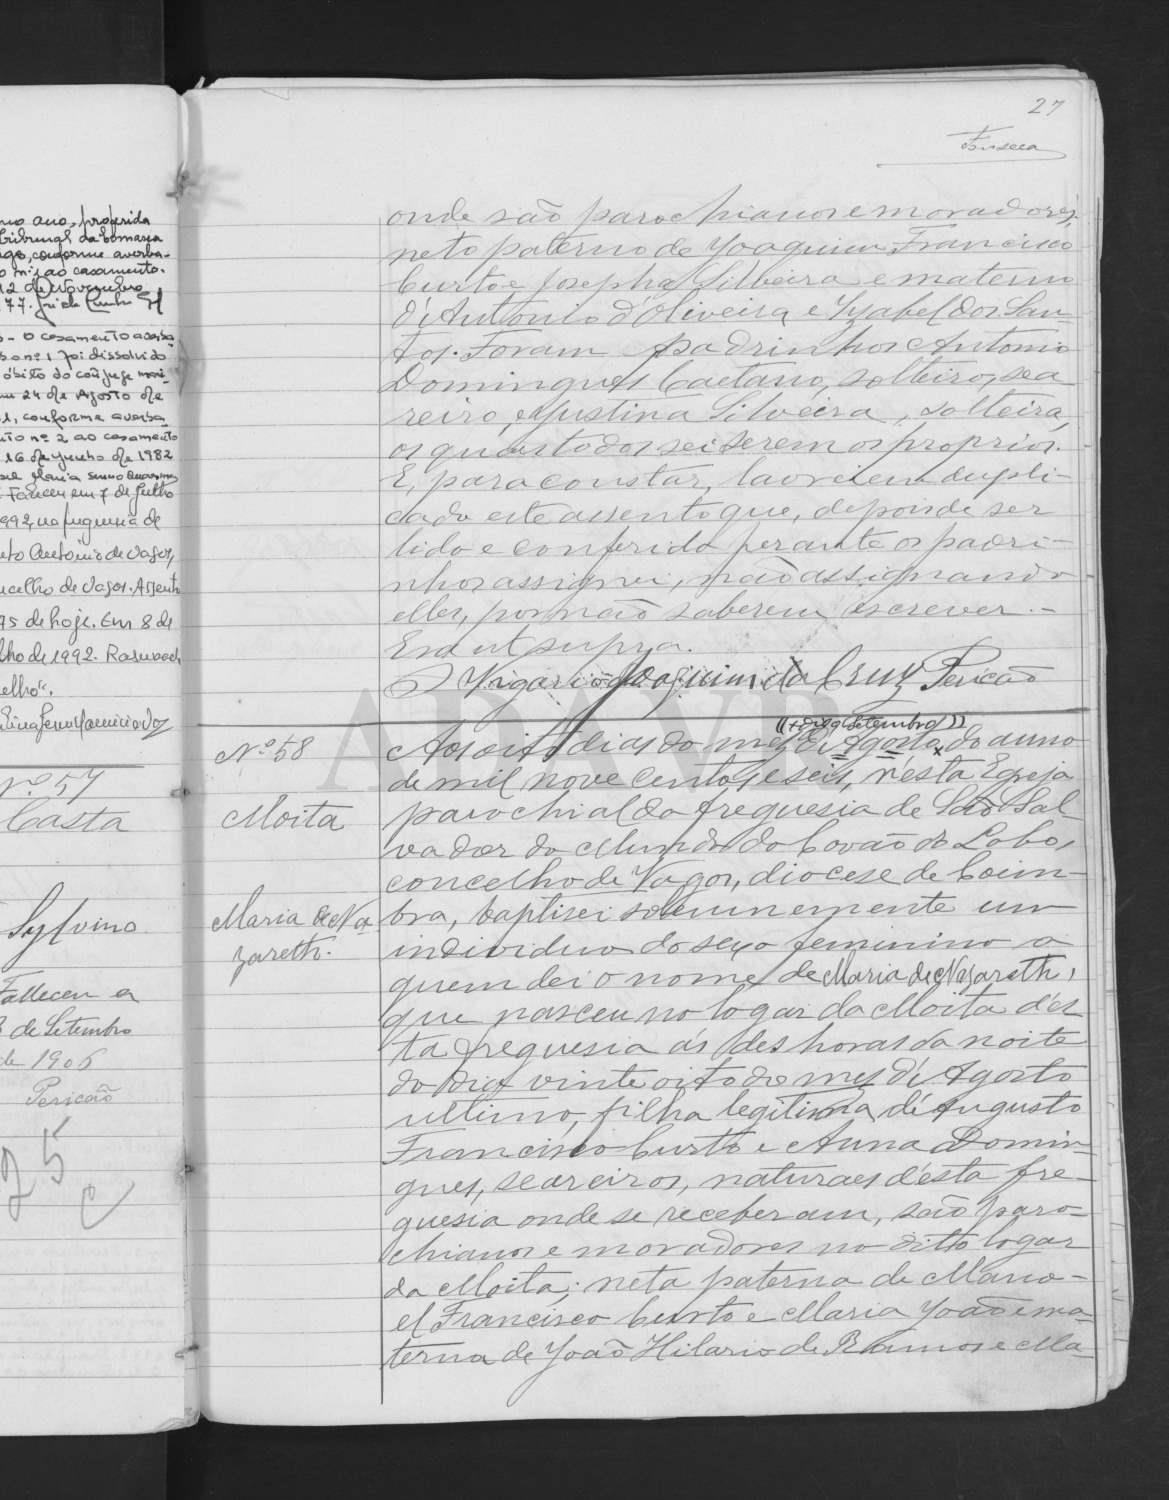 27
Fonseca
mo ano, proferida
Tribunal da Comarca
conforme averba-
nº 1 ao casamento.
12 de Novembro
77.
- O casamento averba-
do nº 1 foi dissolvido
óbito do cônjuge mari-
em 24 de Agosto de
1, conforme averba-
nto nº 2 ao casamento
16 de Junho de 1982
Maria
Faleceu em 7 de Julho
1992, na freguesia de
nto Antonio de Vagos,
ncelho de Vagos. Assento
75 de hoje. Em 8 de
lho de 1992.
elho",
Nº 57
Casta
Sylvino
Falleceu a
8 de Setembro
de 1906
Pericão
25
onde são parochianos e moradores,
neto paterno de Joaquim Francisco
Curto e Josepha Silveira e materno
d'Antonio d'Oliveira e Izabel dos San-
tos. Foram padrinhos Antonio
Domingues Caetano, solteiro, sea-
reiro, e Justina Silveira, solteira,
os quaes todos sei serem os proprios.
E, para constar, lavrei em dupli-
cado este assento que, depois de ser
lido e conferido perante os padri-
nhos assignei, não assignando
elles, por não saberem escrever. -
Era ut supra.
O Vigario Joaquim da Cruz Pericão
((+ digo Setembro))
Nº 58
Aos oito dias do mez de Agosto, do anno
de mil nove centos e seis, n'esta Egreja
Moita
parochial da freguesia de São Sal-
vador do Mundo do Covão do Lobo,
concelho de Vagos, diocese de Coim-
Maria de Na-
zareth.
bra, baptisei solemnemente um
individuo do sexo feminino a
quem dei o nome de Maria de Nazareth,
que nasceu no logar da Moita d'es-
ta freguesia ás des horas da noite
do dia vinte oito do mez de Agosto
ultimo, filha legitima de Augusto
Francisco Curto e Anna Domin-
gues, seareiros, naturaes d'esta fre-
guesia onde se receberam, são paro-
chianos e moradores no ditto logar
da Moita; neta paterna de Mano-
el Francisco Curto e Maria João e ma-
terna de João Hilario de Ramos e Ma-
ADAVR